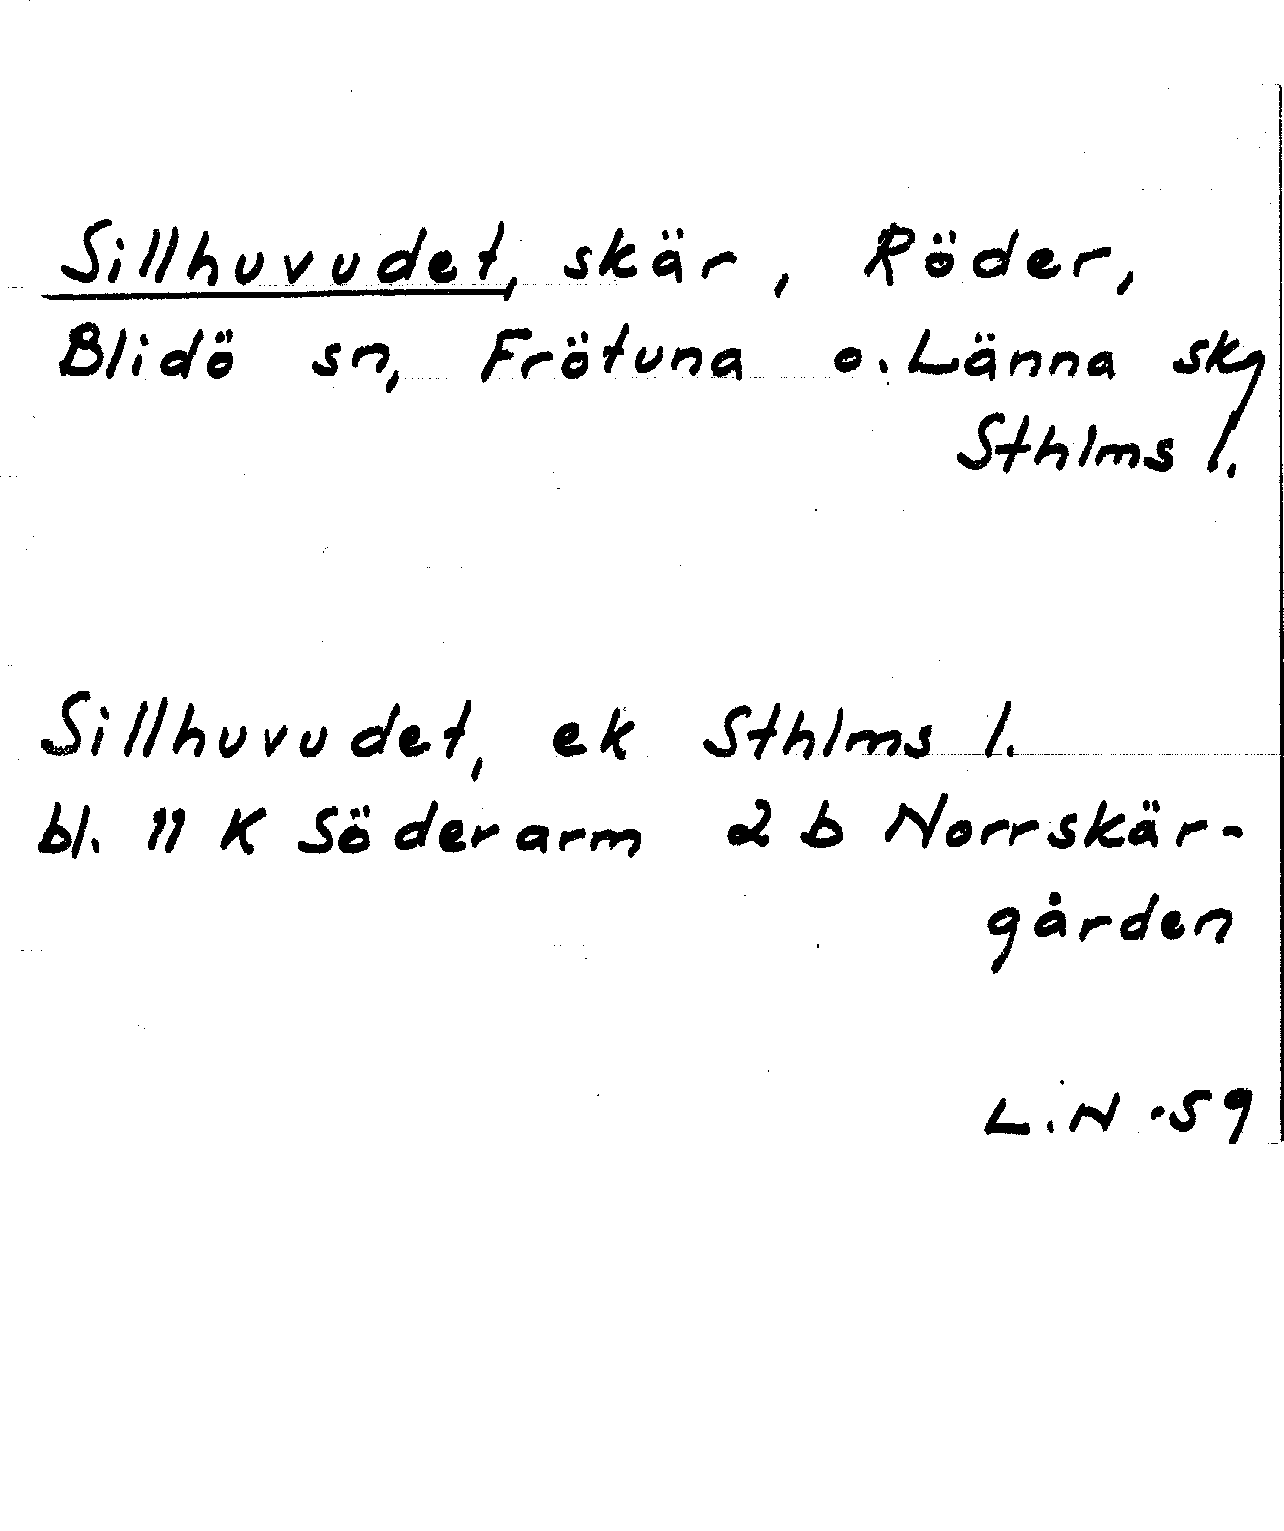 Sillhuvudet, skär, Röder,
Blidö sn, Frötuna o. Länna skg
Sthlms l.
Sillhuvudet, ek Sthlms l.
bl. 11 K Söderarm 2 b Norrskär-
gården
L.N -59